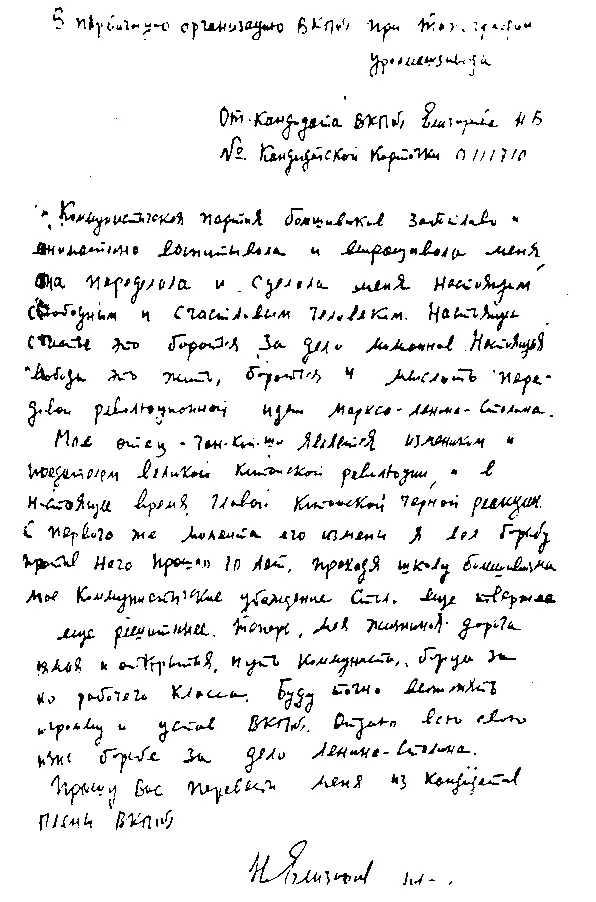 В первичную организацию ВКП(б) при
Уралмашзавода
От кандидата ВКП(б) Елизарова Н В
№ кандидатской карточки
Коммунистическая партия большевиков заботливо и
внимательно воспитывала и выращивала меня,
она переделала и сделала меня настоящим
свободным и счастливым человеком. Настоящее
счастье это бороться за дело миллионов. Настоящая
свобода это жить, бороться и мыслить пере-
довой революционной идеей Маркса-Ленина-Сталина.
Мой отец - Чан-Кай-ши является изменником и
предателем великой китайской революции, и в
настоящее время главой китайской черной реакции.
С первого же момента его измены я вел борьбу
против него. Прошел 10 лет, проходя школу большевизма
мое коммунистическое убеждение еще тверже
еще решительнее. Теперь, моя жизненная дорога
ясная и открытая, путь коммуниста, борца за
рабочего класса. Буду точно выполнять
программу и устав ВКП(б). Отдаю всю свою
жизнь борьбе за дело Ленина-Сталина.
Прошу Вас перевести меня из кандидатов
члены ВКП(б)
Н Елизаров